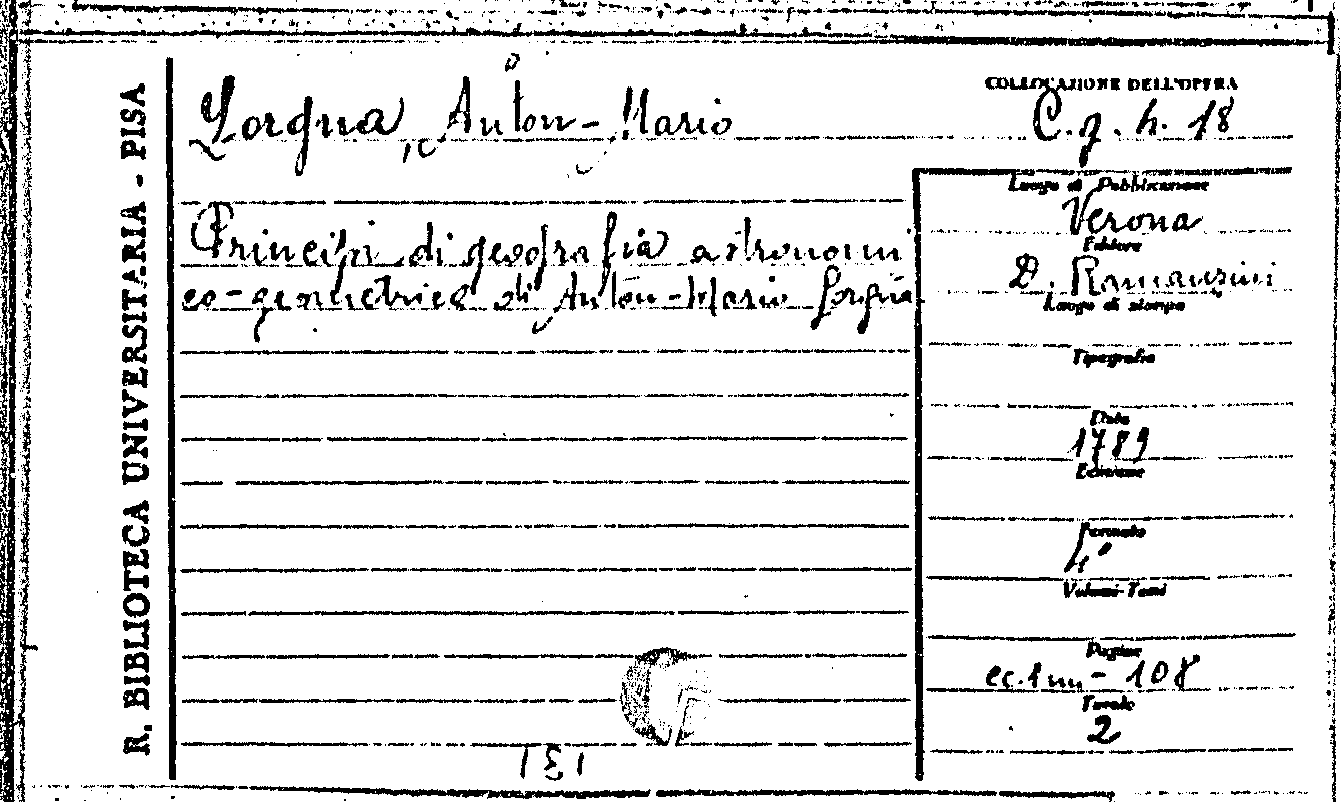 R. BIBLIOTECA UNIVERSITARIA - PISA
Lorgna, Anton-Mario
Principi di geografia astronomi
co-geometrica di Anton-Mario Lorgna.
COLLOCAZIONE DELL'OPERA
C. g. h. 18
Luogo di Pubblicazione
Verona
Editore
D. Ramanzini
Luogo di stampa
Tipografia
Data
1789
Edizione
Formato
4°
Volumi-Tomi
Pagine
108
Tavole
2